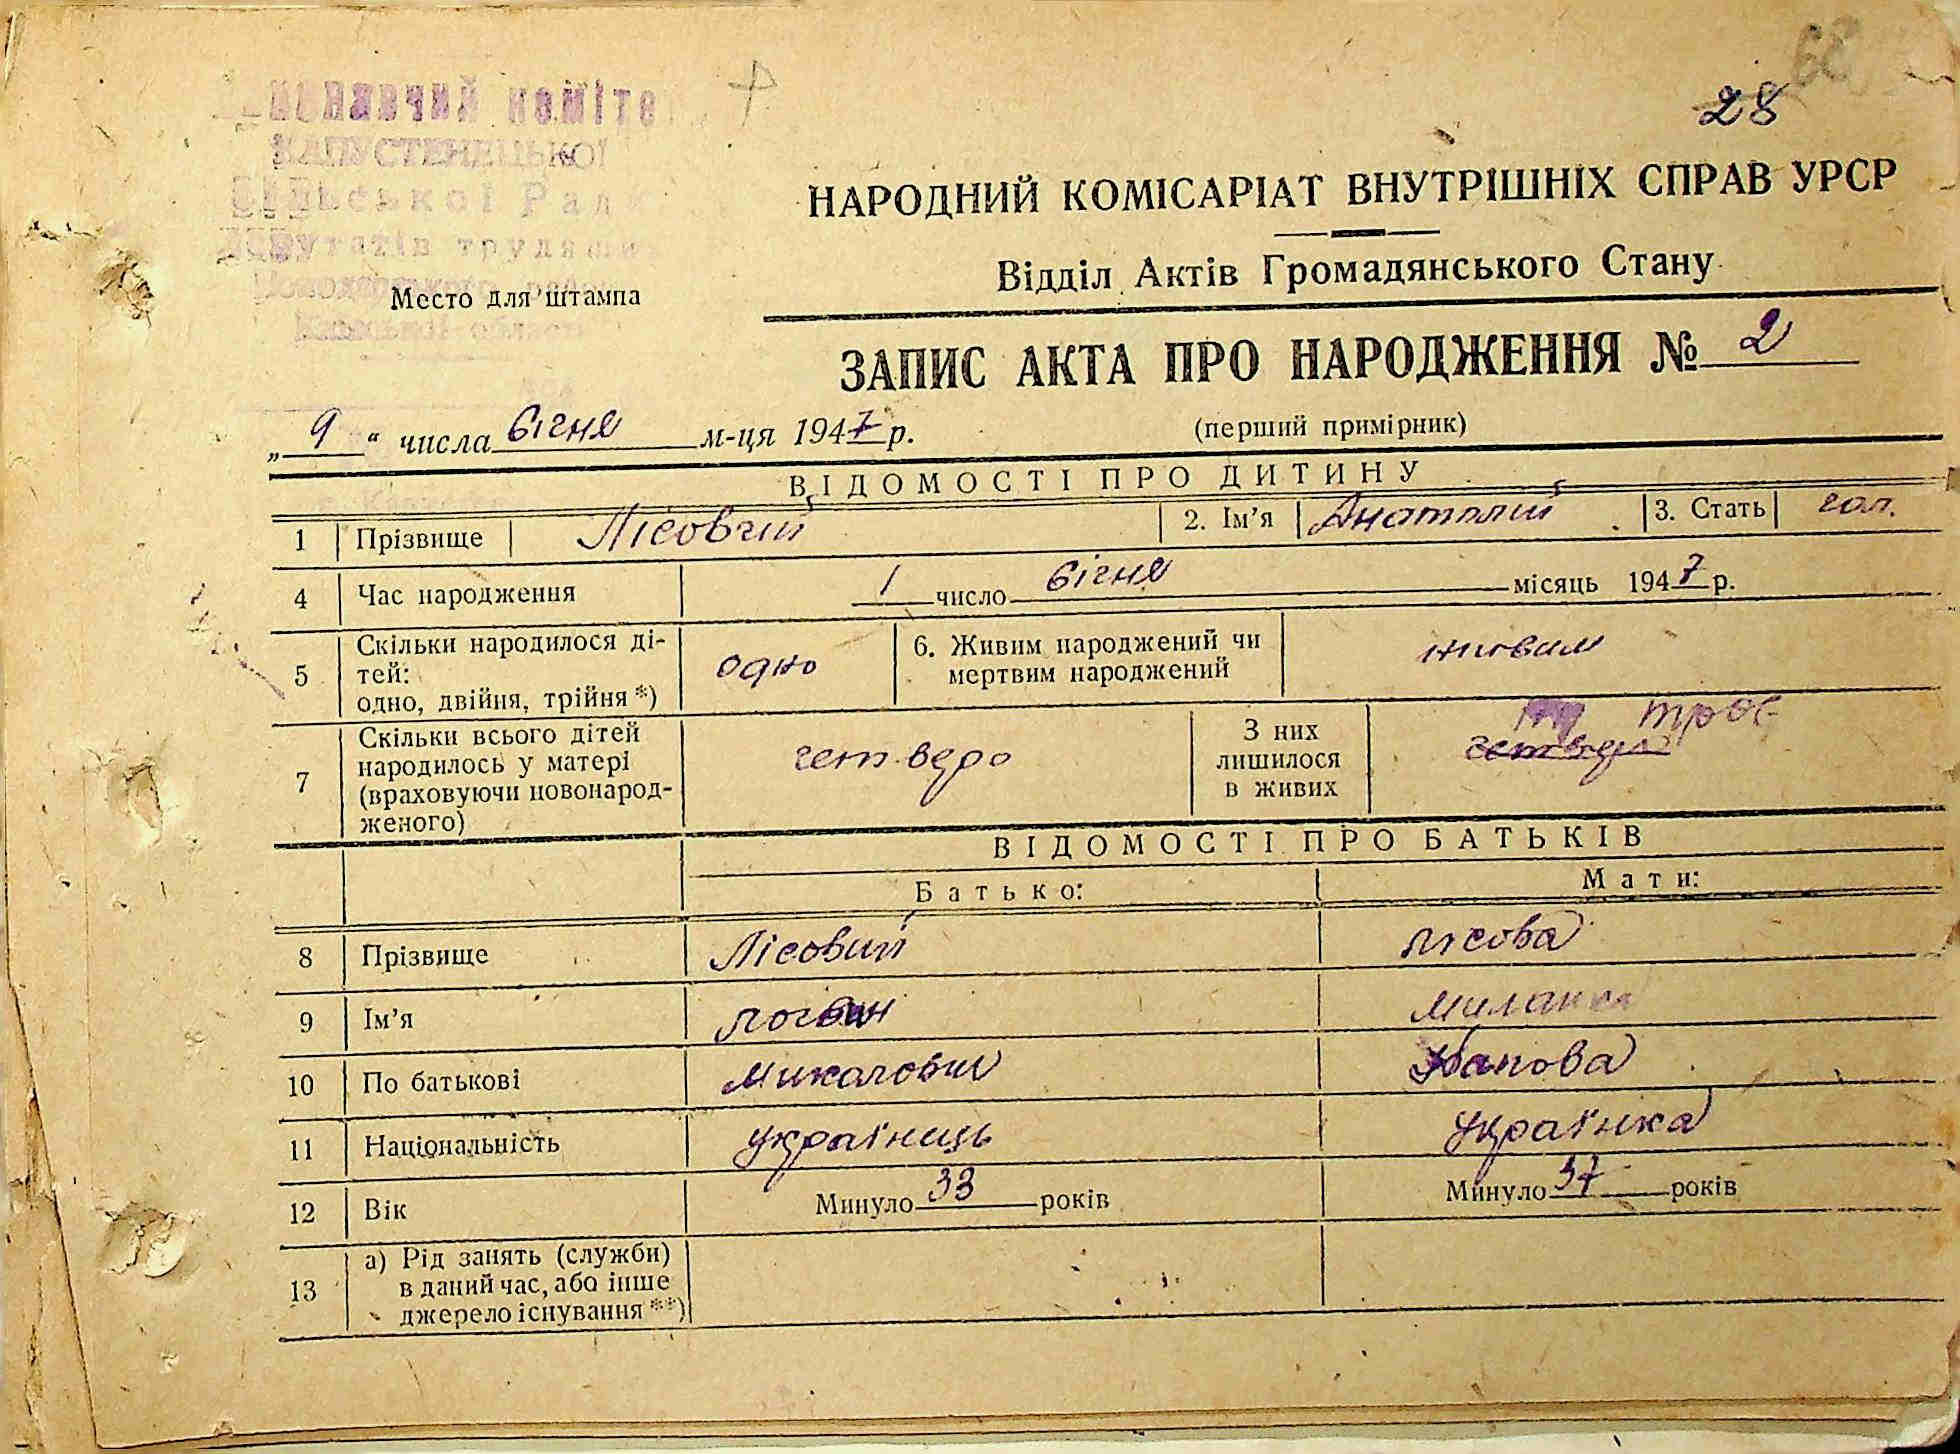 68
28
комітет
КАПУСТЕНЕЦЬКОЇ
Сільської Ради
депутатів трудящих
Київської області
Место для штампа
НАРОДНИЙ КОМІСАРІАТ ВНУТРІШНІХ СПРАВ УРСР
Відділ Актів Громадянського Стану
ЗАПИС АКТА ПРО НАРОДЖЕННЯ № 2
„ 9 “ числа січня м-ця 1947 р. (перший примірник)
ВІДОМОСТІ ПРО ДИТИНУ
1 Прізвище Лісовий 2. Ім’я Анатолій 3. Стать чол.
4 Час народження 1 число січня місяць 1947 р.
5 Скільки народилося ді-
тей:
одно, двійня, трійня *) одно 6. Живим народжений чи
мертвим народжений живим
7 Скільки всього дітей
народилось у матері
(враховуючи новонарод-
женого) четверо З них
лишилося
в живих четверо троє
ВІДОМОСТІ ПРО БАТЬКІВ
Батько: Мати:
8 Прізвище Лісовий Лісова
9 Ім’я Логвин Миланка
10 По батькові Микалович
11 Національність українець українка
12 Вік Минуло 33 років Минуло 37 років
13 а) Рід занять (служби)
в даний час, або інше
джерело існування **)